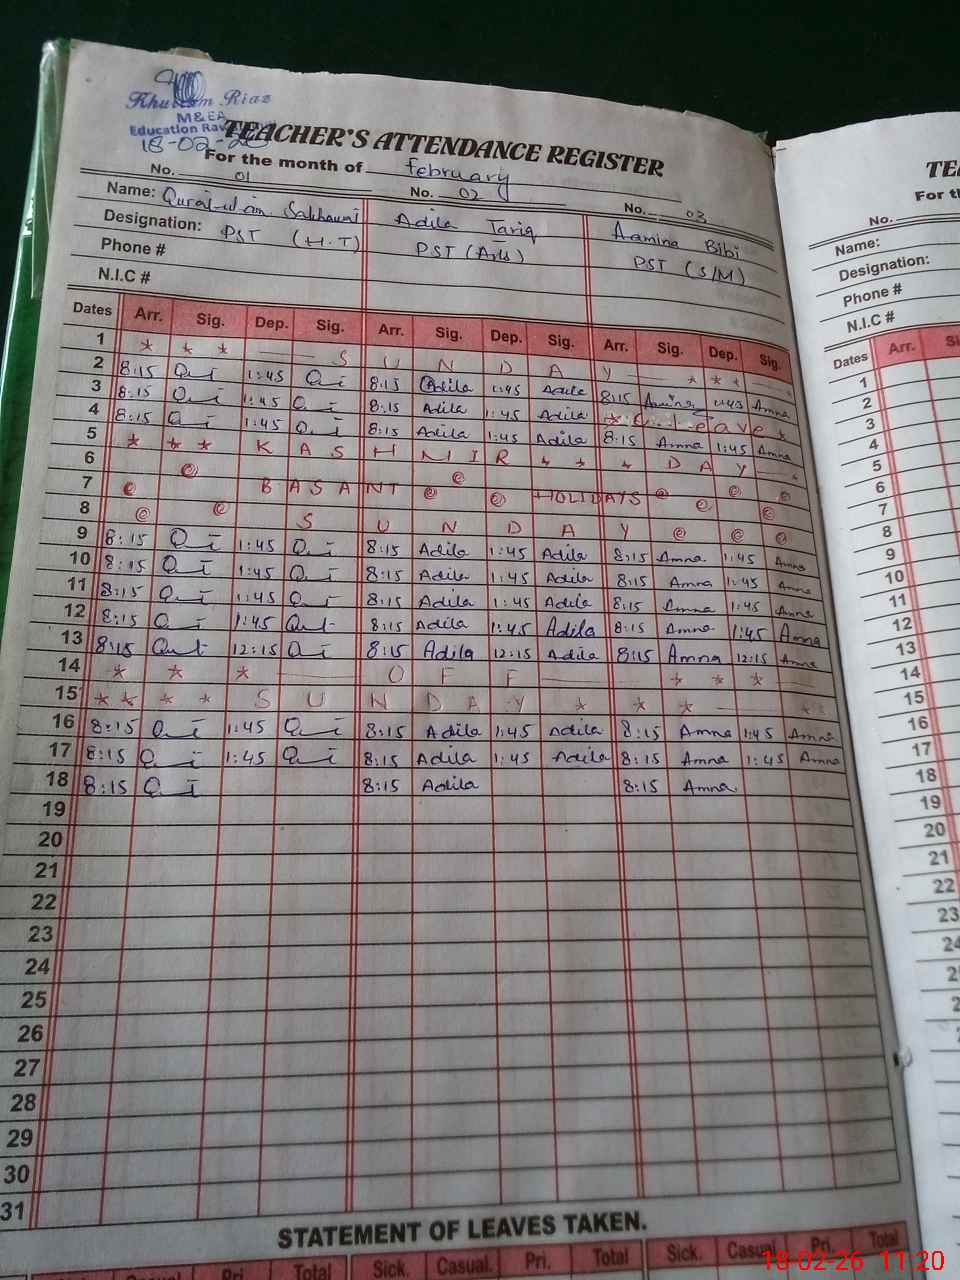 Khurram Riaz
M&EA
Education Raw
18-02-26
TEACHER'S ATTENDANCE REGISTER
For the month of February
No. 01 No. 02 No. 03
Name: Qurat-ul-ain Sakhawat Adila Tariq Aamina Bibi
Designation: PST (H.T) PST (Arts) PST (S/M)
Phone #
N.I.C #
Dates Arr. Sig. Dep. Sig. Arr. Sig. Dep. Sig. Arr. Sig. Dep. Sig.
1 * * * S U N D A Y * * *
2 8:15 1:45 8:15 Adila 1:45 Adila 8:15 Amna 1:45 Amna
3 8:15 1:45 8:15 Adila 1:45 Adila * Leave *
4 8:15 1:45 8:15 Adila 1:45 Adila 8:15 Amna 1:45 Amna
5 * * * K A S H M I R * * * D A Y
6
7 B A S A N T HOLIDAYS
8 S U N D A Y
9 8:15 1:45 8:15 Adila 1:45 Adila 8:15 Amna 1:45 Amna
10 8:15 1:45 8:15 Adila 1:45 Adila 8:15 Amna 1:45 Amna
11 8:15 1:45 8:15 Adila 1:45 Adila 8:15 Amna 1:45 Amna
12 8:15 1:45 8:15 Adila 1:45 Adila 8:15 Amna 1:45 Amna
13 8:15 12:15 8:15 Adila 12:15 Adila 8:15 Amna 12:15 Amna
14 * * * O F F * * *
15 * * * * S U N D A Y * * * * *
16 8:15 1:45 8:15 Adila 1:45 Adila 8:15 Amna 1:45 Amna
17 8:15 1:45 8:15 Adila 1:45 Adila 8:15 Amna 1:45 Amna
18 8:15 8:15 Adila 8:15 Amna
19
20
21
22
23
24
25
26
27
28
29
30
31
STATEMENT OF LEAVES TAKEN.
Casual Pri. Total Sick. Casual. Pri. Total Sick. Casual Pri. Total
For th
No.
Name:
Designation:
Phone #
N.I.C #
Dates Arr.
1
2
3
4
5
6
7
8
9
10
11
12
13
14
15
16
17
18
19
20
21
22
23
18-02-26 11:20